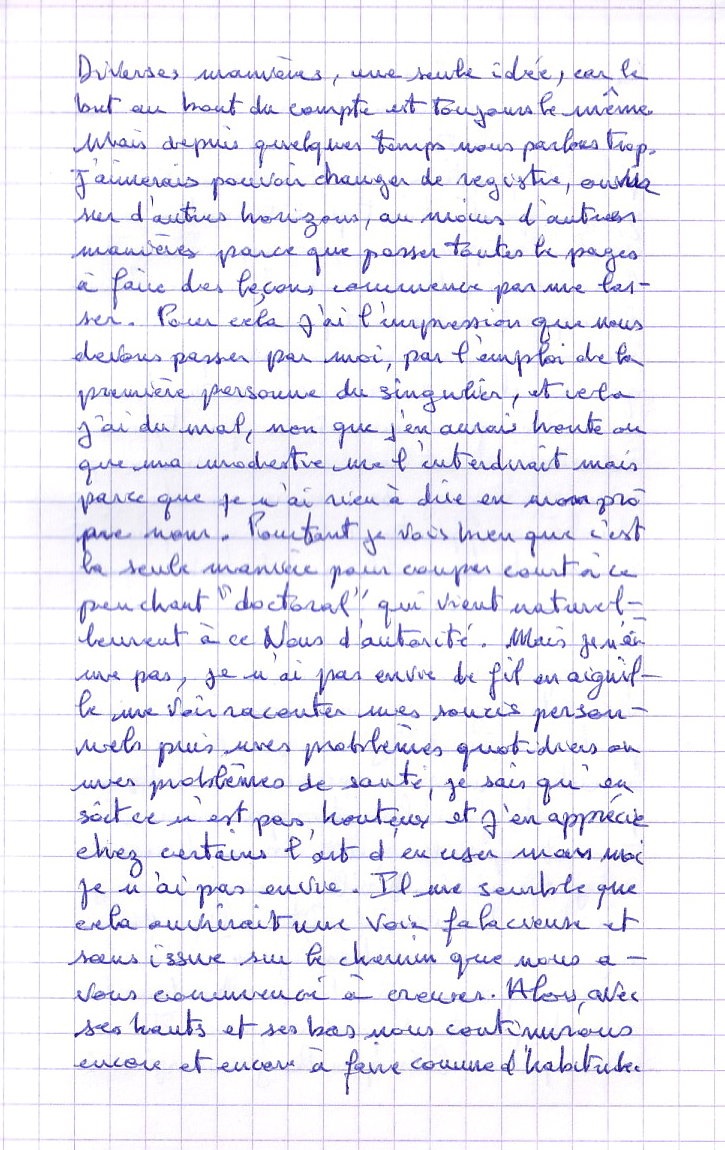 Diverses manières, une seule idée, car le
but au bout du compte est toujours le même.
Mais depuis quelques temps nous parlons trop.
J'aimerais pouvoir changer de registre, ouvrir
sur d'autres horizons, au moins d'autres
manières parce que passer toutes le pages
à faire des leçons commence par me las-
ser. Pour cela j'ai l'impression que nous
devons passer par moi, par l'emploi de la
première personne du singulier, et cela
j'ai du mal, non que j'en aurais honte ou
que ma modestie me l'interdirait mais
parce que je n'ai rien à dire en mon pro
pre nom. Pourtant je vois bien que c'est
la seule manière pour couper court à ce
penchant "doctoral" qui vient naturel-
lement à ce Nous d'autorité. Mais je n'ai
me pas, je n'ai pas envie de fil en aiguil-
le me voir raconter mes soucis person-
nels puis mes problèmes quotidiens ou
mes problèmes de santé, je sais qu'en
soit ce n'est pas honteux et j'en apprécie
chez certains l'art d'en user mais moi
je n'ai pas envie. Il me semble que
cela ouvrirait une voie falacieuse et
sans issue sur le chemin que nous a-
vons commencé à creuser. Alors, avec
ses hauts et ses bas nous continurons
encore et encore à faire comme d'habitude.